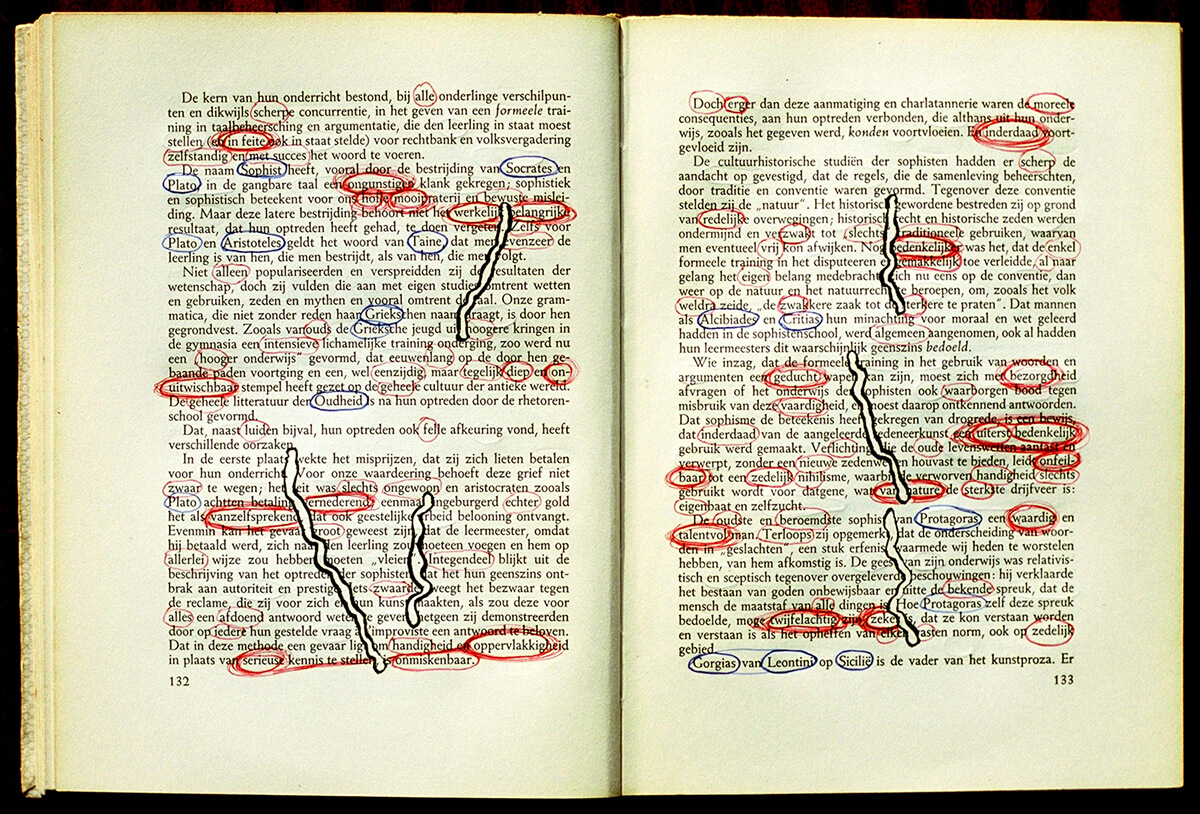 De kern van hun onderricht bestond, bij alle onderlinge verschilpun-
ten en dikwijls scherpe concurrentie, in het geven van een formeele trai-
ning in taalbeheersching en argumentatie, die den leerling in staat moest
stellen (en in feite ook in staat stelde) voor rechtbank en volksvergadering
zelfstandig en met succes het woord te voeren.
De naam Sophist heeft, vooral door de bestrijding van Socrates en
Plato in de gangbare taal een ongunstigen klank gekregen; sophistiek
en sophistisch beteekent voor ons holle mooipraterij en bewuste mislei-
ding. Maar deze latere bestrijding behoort niet het werkelijk belangrijke
resultaat, dat hun optreden heeft gehad, te doen vergeten. Zelfs voor
Plato en Aristoteles geldt het woord van Taine dat men evenzeer de
leerling is van hen, die men bestrijdt, als van hen, die men volgt.
Niet alleen populariseerden en verspreidden zij de resultaten der
wetenschap, doch zij vulden die aan met eigen studies omtrent wetten
en gebruiken, zeden en mythen en vooral omtrent de taal. Onze gram-
matica, die niet zonder reden haar Griekschen naam draagt, is door hen
gegrondvest. Zooals vanouds de Grieksche jeugd uit hoogere kringen in
de gymnasia een intensieve lichamelijke training onderging, zoo werd nu
een „hooger onderwijs” gevormd, dat eeuwenlang op de door hen ge-
baande paden voortging en een, wel eenzijdig, maar tegelijk diep en on-
uitwischbaar stempel heeft gezet op de geheele cultuur der antieke wereld.
De geheele litteratuur der Oudheid is na hun optreden door de rhetoren-
school gevormd.
Dat, naast luiden bijval, hun optreden ook felle afkeuring vond, heeft
verschillende oorzaken.
In de eerste plaats wekte het misprijzen, dat zij zich lieten betalen
voor hun onderricht. Voor onze waardeering behoeft deze grief niet
zwaar te wegen; het feit was slechts ongewoon en aristocraten zooals
Plato achtten betaling vernederend; eenmaal ingeburgerd echter gold
het als vanzelfsprekend dat ook geestelijke arbeid belooning ontvangt.
Evenmin kan het gevaar groot geweest zijn, dat de leermeester, omdat
hij betaald werd, zich naar den leerling zou moeten voegen en hem op
allerlei wijze zou hebben moeten „vleien”. Integendeel blijkt uit de
beschrijving van het optreden der sophisten, dat het hun geenszins ont-
brak aan autoriteit en prestige. Iets zwaarder weegt het bezwaar tegen
de reclame, die zij voor zich en hun kunst maakten, als zou deze voor
alles een afdoend antwoord weten te geven, hetgeen zij demonstreerden
door op iedere hun gestelde vraag à l'improviste een antwoord te beloven.
Dat in deze methode een gevaar ligt om handigheid en oppervlakkigheid
in plaats van serieuse kennis te stellen, is onmiskenbaar.
132
Doch erger dan deze aanmatiging en charlatannerie waren de moreele
consequenties, aan hun optreden verbonden, die althans uit hun onder-
wijs, zooals het gegeven werd, konden voortvloeien. En inderdaad voort-
gevloeid zijn.
De cultuurhistorische studiën der sophisten hadden er scherp de
aandacht op gevestigd, dat de regels, die de samenleving beheerschten,
door traditie en conventie waren gevormd. Tegenover deze conventie
stelden zij de „natuur”. Het historisch gewordene bestreden zij op grond
van redelijke overwegingen; historisch recht en historische zeden werden
ondermijnd en verzwakt tot slechts traditioneele gebruiken, waarvan
men eventueel vrij kon afwijken. Nog bedenkelijker was het, dat de enkel
formeele training in het disputeeren er gemakkelijk toe verleidde, al naar
gelang het eigen belang medebracht zich nu eens op de conventie, dan
weer op de natuur en het natuurrecht te beroepen, om, zooals het volk
weldra zeide, „de zwakkere zaak tot de sterkere te praten”. Dat mannen
als Alcibiades en Critias hun minachting voor moraal en wet geleerd
hadden in de sophistenschool, werd algemeen aangenomen, ook al hadden
hun leermeesters dit waarschijnlijk geenszins bedoeld.
Wie inzag, dat de formeele training in het gebruik van woorden en
argumenten een geducht wapen kan zijn, moest zich met bezorgdheid
afvragen of het onderwijs der sophisten ook waarborgen bood tegen
misbruik van deze vaardigheid, en moest daarop ontkennend antwoorden.
Dat sophisme de beteekenis heeft gekregen van drogrede, is een bewijs,
dat inderdaad van de aangeleerde redeneerkunst een uiterst bedenkelijk
gebruik werd gemaakt. Verlichting, die de oude levenswetten aantast en
verwerpt, zonder een nieuwe zedenwet en houvast te bieden, leidt onfeil-
baar tot een zedelijk nihilisme, waarbij de verworven handigheid slechts
gebruikt wordt voor datgene, wat van nature de sterkste drijfveer is:
eigenbaat en zelfzucht.
De oudste en beroemdste sophist van Protagoras een waardig en
talentvol man. Terloops zij opgemerkt, dat de onderscheiding van woor-
den in „geslachten”, een stuk erfenis waarmede wij heden te worstelen
hebben, van hem afkomstig is. De geest van zijn onderwijs was relativis-
tisch en sceptisch tegenover overgeleverde beschouwingen: hij verklaarde
het bestaan van goden onbewijsbaar en uitte de bekende spreuk, dat de
mensch de maatstaf van alle dingen is. Hoe Protagoras zelf deze spreuk
bedoelde, moge twijfelachtig zijn, zeker is, dat ze kon verstaan worden
en verstaan is als het opheffen van elken vasten norm, ook op zedelijk
gebied.
Gorgias van Leontini op Sicilië is de vader van het kunstproza. Er
133